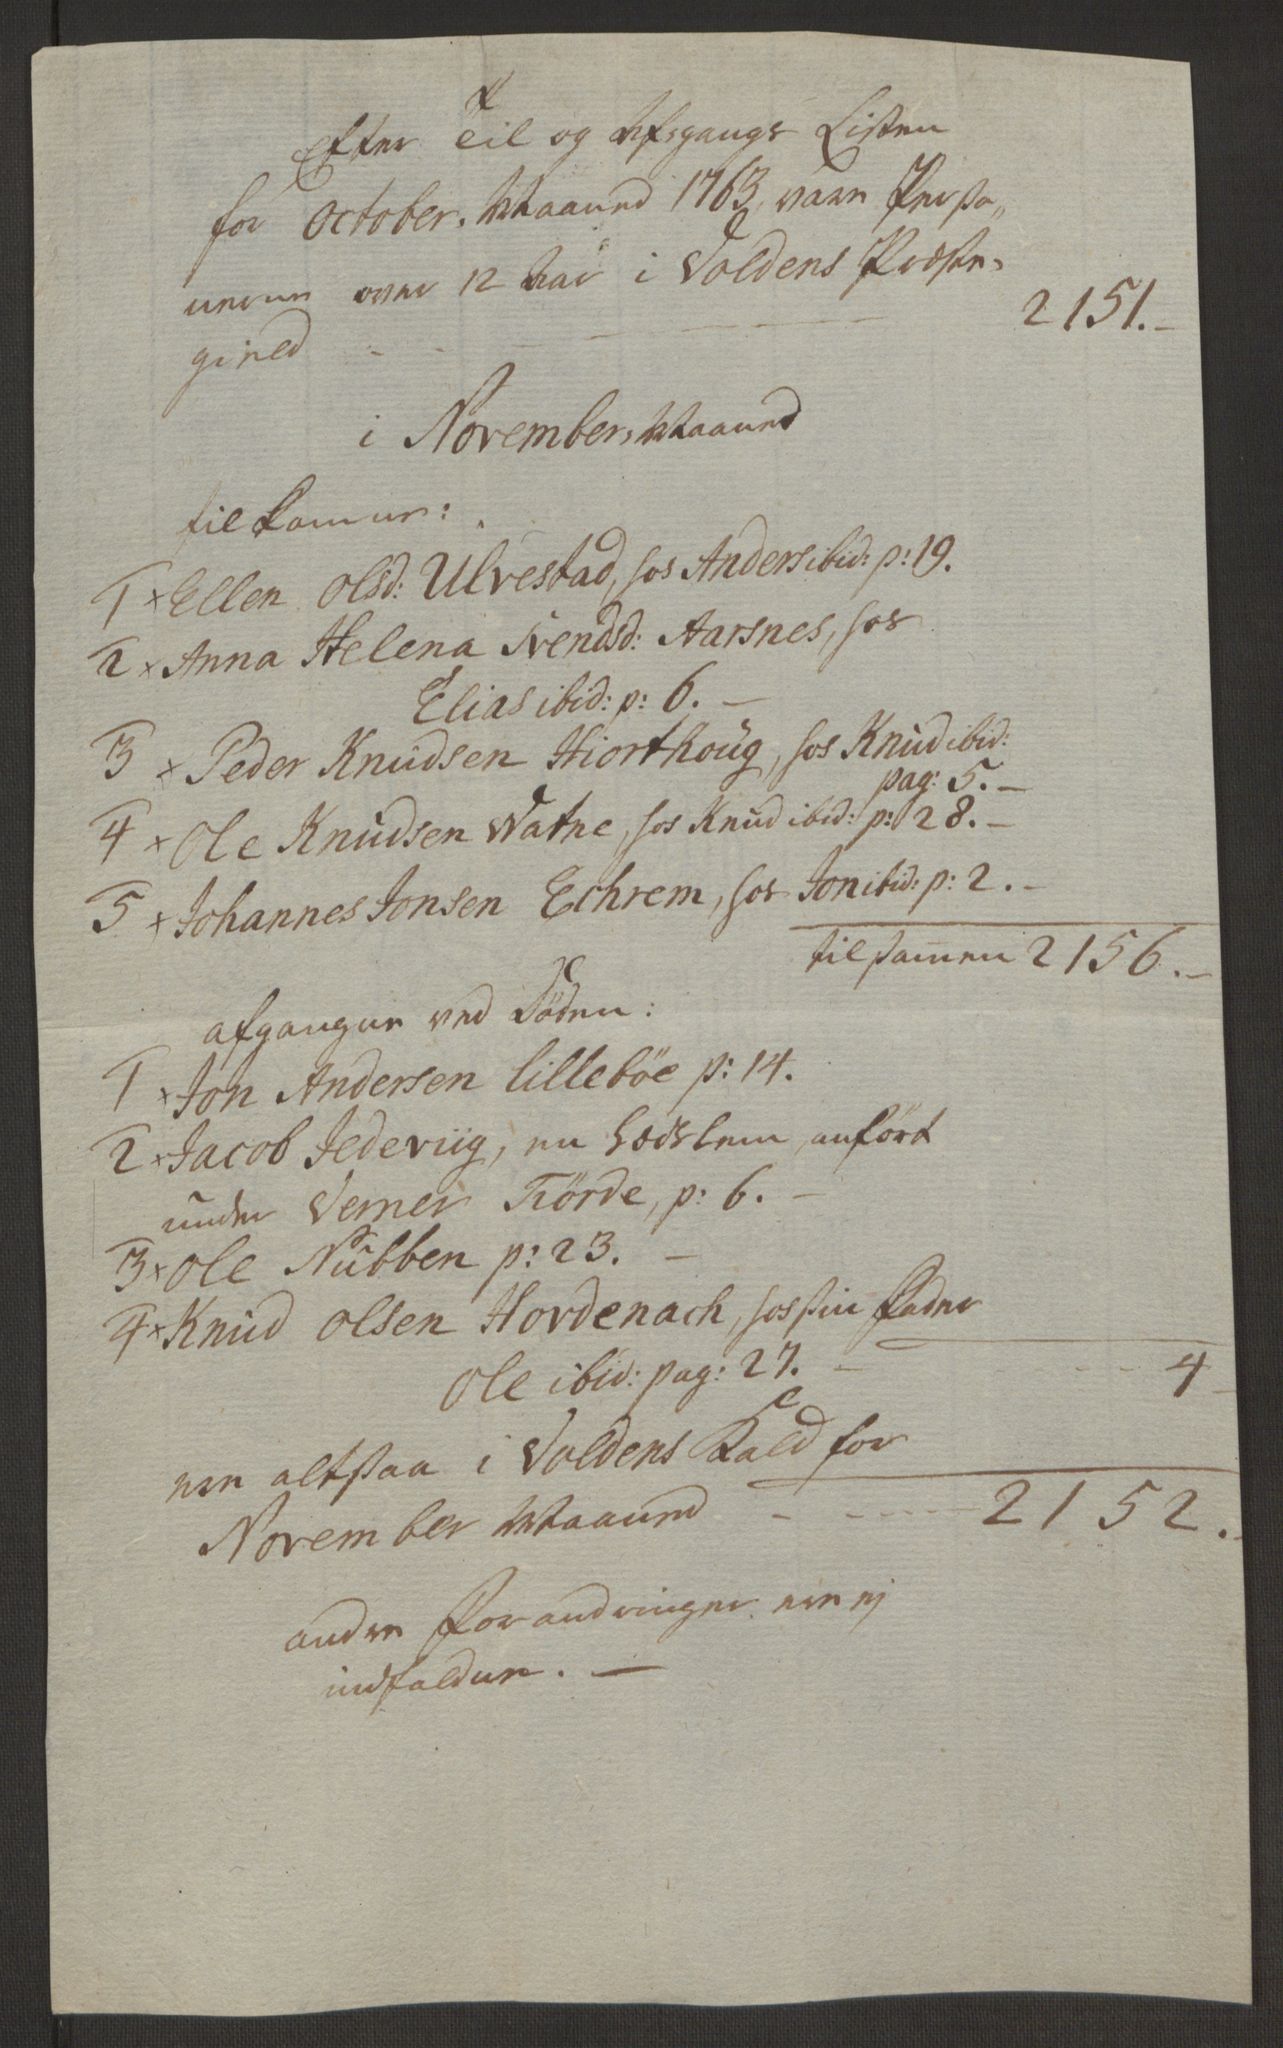 Efter Til og Afgangs Listen
for October Maaned 1763, vare Perso„
nerne over 12 Aar i Voldens Præste-
gield - - - 2151.-
i November Maaned
tilkomne:
1 x Ellen Olsd: Ulvestad, hos Anders ibid: p: 19.
2 x Anna Helena Svendsd: Aarsnes, hos
Elias ibid: p: 6. -
3 x Peder Knudsen Hiorthoug, hos Knud ibid:
pag: 5. -
4 x Ole Knudsen Watne, hos Knud ibid: p: 28. -
5 x Johannes Jonsen Echrem, hos Jon ibid: p: 2. -
tilsamen 2156. -
afgangne ved Døden:
1 x Jon Andersen Lillebøe p: 14.
2 x Jacob Jedeviig, en Lægslem, anført
under Verner Fiörde, p: 6. -
3 x Ole Nubben p: 23. -
4 x Knud Olsen Hordenach, hos sin Fader
Ole ibid: pag: 27. - - - 4
ere altsaa i Voldens Kald for
November Maaned - - - 2152.
andre Forandringer ere ej
indfaldne. -